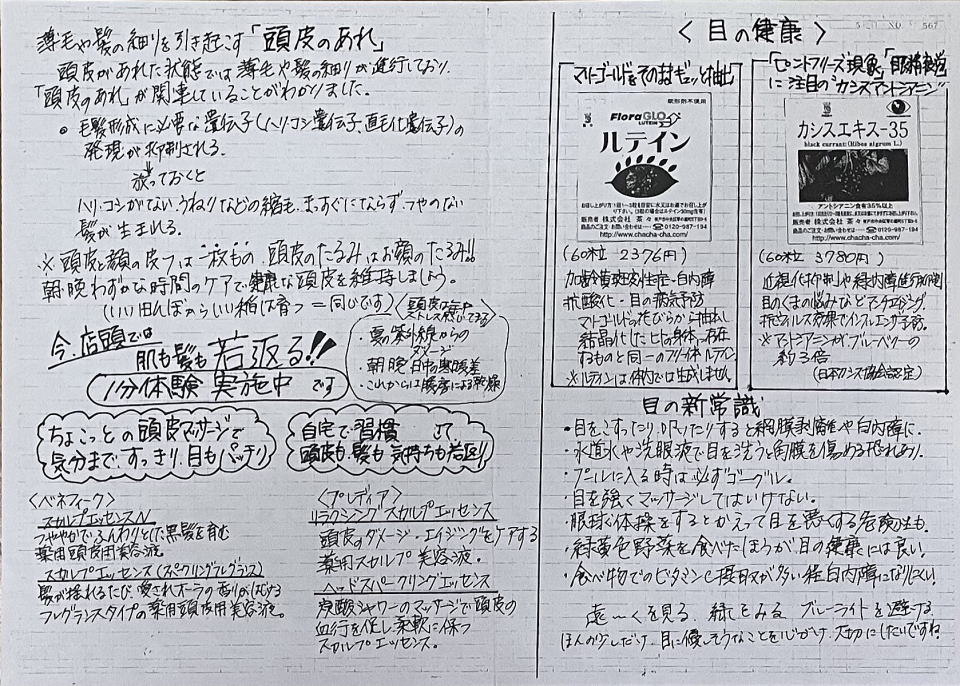 薄毛や髪の細りを引き起こす「頭皮のあれ」
頭皮があれた状態では薄毛や髪の細りが進行しており、
「頭皮のあれ」が関連していることがわかりました。
• 毛髪形成に必要な遺伝子(ハリコシ遺伝子、直毛化遺伝子)の
発現が抑制される。
放っておくと
ハリ・コシがない、うねりなどの縮毛、まっすぐにならず、つやのない
髪が生まれる。
※ 頭皮と顔の皮フは一枚もの、頭皮のたるみはお顔のたるみ!!
朝・晩わずかな時間のケアで健康な頭皮を維持しましょう。
(いい田んぼからいい稲は育つ = 同じです)
〈頭皮は
ストレス 〉
・夏の紫外線からの
ダメージ
・朝晩、日中の寒暖差
・これからは暖房による乾燥
今、店頭では
肌も髪も 若返る!!
1分体験 実施中 です
ちょこっとの頭皮マッサージで
気分まですっきり、目もパッチリ
自宅で習慣 して
頭皮も、髪も 気持ちも若返り
〈ベネフィーク〉
スカルプエッセンスN
つややかでふんわりとした黒髪を育む
薬用頭皮用美容液。
スカルプエッセンス(スパークリングフレグランス)
髪が揺れるたび、愛されオーラの香りがはずむ
フレグランスタイプの薬用頭皮用美容液。
〈プレディア〉
リラクシングスカルプエッセンス
頭皮のダメージ・エイジングをケアする
薬用スカルプ美容液。
ヘッドスパークリングエッセンス
炭酸シャワーのマッサージで頭皮の
血行を促し柔軟に保つ
スカルプエッセンス。
〈目の健康〉
「マリーゴールドをそのままギュッと抽出」
賦形剤不使用
FloraGLO
LUTEIN
ルテイン
販売者 株式会社 茶々
☎0120-987-194
http://www.chacha-cha.com/
(60粒 2376円)
加齢黄斑変性症・白内障
抗酸化・目の病気予防
マリーゴールドの花びらから抽出し
結晶化したヒトの身体に存在
するものと同一のフリー体ルテイン
※ルテインは体内では生成しません
「セロントフリーズ現象」「眼精疲労」
に注目の"カシスアントシアニン"
カシスエキス-35
black currant(Ribes nigrum L.)
アントシアニン含有35%以上
販売者 株式会社 茶々
☎0120-987-194
http://www.chacha-cha.com/
(60粒 3780円)
近視化抑制や緑内障進行抑制
目のくまの悩みひとみアンチエイジング
抗ウィルス効果でインフルエンザ予防。
※アントシアニンがブルーベリーの
約3倍
(日本カシス協会認定)
目の新常識
・目をこすったり、叩いたりすると網膜剥離や白内障に。
・水道水や洗眼液で目を洗うと角膜を傷める恐れあり。
・プールに入る時は必ずゴーグル。
・目を強くマッサージしてはいけない。
・眼球体操をするとかえって目を悪くする危険性も。
・緑黄色野菜を食べたほうが、目の健康には良い!
・食べ物でのビタミンC摂取が多い程白内障になりにくい!
遠〜くを見る、緑をみる ブルーライトを避ける
ほんの少しだけ、目に優しそうなことを心がけ、大切にしたいですね